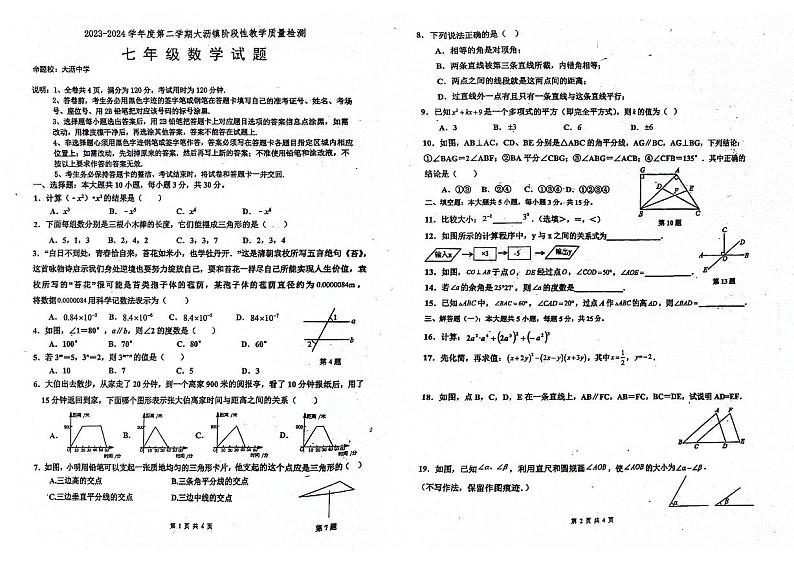 2023-2024 学年度第二学期大沥镇阶段性教学质量检测
七 年 级 数 学 试 题
命题校：大沥中学
说明：1、全卷共 4 页，满分为 120 分，考试用时为 120 分钟.
2、答卷前，考生务必用黑色字迹的签字笔或钢笔在答题卡填写自己的准考证号、姓名、考场
号、座位号、用 2B 铅笔把对应该号码的标号涂黑.
3、选择题每小题选出答案后，用 2B 铅笔把答题卡上对应题目选项的答案信息点涂黑，如需
改动，用橡皮擦干净后，再选涂其他答案，答案不能答在试题上.
4、非选择题必须用黑色字迹钢笔或签字笔作答，答案必须写在答题卡各题目指定区域内相应
位置上；如需改动，先划掉原来的答案，然后再写上新的答案；不准使用铅笔和涂改液，不
按以上要求作答的答案无效.
5、考生务必保持答题卡的整洁，考试结束时，将试卷和答题卡一并交回.
一、选择题：本大题共 10 小题，每小题 3 分，共 30 分。
1．计算（-x）²•x³的结果是（ ）
A．x⁵ B．-x⁵ C．x⁶ D．-x⁶
2．下面每组数分别是三根小木棒的长度，它们能摆成三角形的是（ ）
A．5，1，3 B．2，4，2 C．3，3，7 D．2，3，4
3．“白日不到处，青春恰自来，苔花如米小，也学牡丹开．”这是清朝袁枚所写五言绝句《苔》，
这首咏物诗启示我们身处逆境也要努力绽放自己，要和苔花一样尽自己所能实现人生价值，袁
枚所写的“苔花”很可能是苔类孢子体的苞荫，某孢子体的苞荫直径约为 0.0000084m，
将数据 0.0000084 用科学记数法表示为（ ）
A．0.84×10⁻⁵ B．8.4×10⁻⁶ C．8.4×10⁻⁵ D．84×10⁻⁷
4．如图，∠1＝80°，a∥b，则∠2 的度数是（ ）
A．100° B．70° C．80° D．60°
1
a
2
b
第 4 题
5．若 3ᵐ＝5，3ⁿ＝2，则 3ᵐ⁺ⁿ的值是（ ）
A．10 B．7 C．5 D．3
6．大伯出去散步，从家走了 20 分钟，到一个离家 900 米的阅报亭，看了 10 分钟报纸后，用了
15 分钟返回到家，下面哪个图形表示张大伯离家时间与距离之间的关系（ ）
A． 距离/米 900 时间/分
B． 距离/米 900 时间/分
C． 距离/米 900 时间/分
D． 距离/米 900 时间/分
7．如图，小明用铅笔可以支起一张质地均匀的三角形卡片，他支起的这个点应是三角形的（ ）
A.三边高的交点 B.三条角平分线的交点
C.三边垂直平分线的交点 D.三边中线的交点
第 7 题
第 1 页 共 4 页
8．下列说法正确的是（ ）
A．相等的角是对顶角；
B．两条直线被第三条直线所截，内错角相等；
C．两点之间的线段就是这两点间的距离；
D．过直线外一点有且只有一条直线与这条直线平行；
9．已知 x²+kx+9 是一个多项式的平方（即完全平方式），则 k 的值为（ ）
A．3 B．±3 C．6 D．±6
10．如图，AB⊥AC，CD、BE 分别是△ABC 的角平分线，AG∥BC，AG⊥BG，下列结论：
①∠BAG=2∠ABF；②BA 平分∠CBG；③∠ABG=∠ACB；④∠CFB=135°．其中正确的
结论是（ ）
A．①③ B．②④ C．①③④ D．①②③④
G A
D E
F
B C
第 10 题
二、填空题：本大题共 5 小题，每小题 3 分，共 15 分。
11．比较大小：2⁻² ____3⁰．（选填＞，＝，＜）
12．如图所示的计算程序中，y 与 x 之间的关系式为____________．
输入x ×3 -5 输出y
13．如图，CO⊥AB 于点 O，DE 经过点 O，∠COD=50°，∠AOE=____________．
第 13 题
14．若∠α的余角是 52°27′，则∠α的度数是____________．
15．已知△ABC 中，∠BAC=60°，∠CAD=20°，过点 A 作△ABC 的高 AD，则∠BAD=____________．
三、解答题（一）：本大题共 5 小题，每题 5 分，共 25 分。
16．计算：2a²·a⁴+(2a³)²+(-a²)³
17．先化简，再求值：(x+2y)²-(2x-y)(x+3y)，其中 x=1/2，y=-2．
18．如图，点 B，C，D，E 在一条直线上，AB∥FC，AB＝FC，BC＝DE，试说明 AD=EF．
A F
B C D E
19．如图，已知∠α、∠β，利用直尺和圆规画∠AOB，使∠AOB的大小为∠α-∠β．
（不写作法，保留作图痕迹．）
α
β
第 2 页 共 4 页